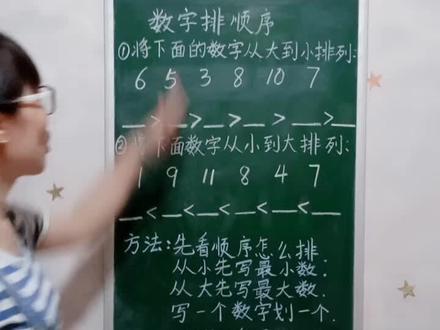 数字排顺序
①将下面的数字从大到小排列:
6 5 3 8 10 7
__>__>__>__>__>__
②将下面数字从小到大排列:
1 9 11 8 4 7
__<__<__<__<__<__
方法:先看顺序怎么排
从小先写最小数.
从大先写最大数.
写一个数字划一个.